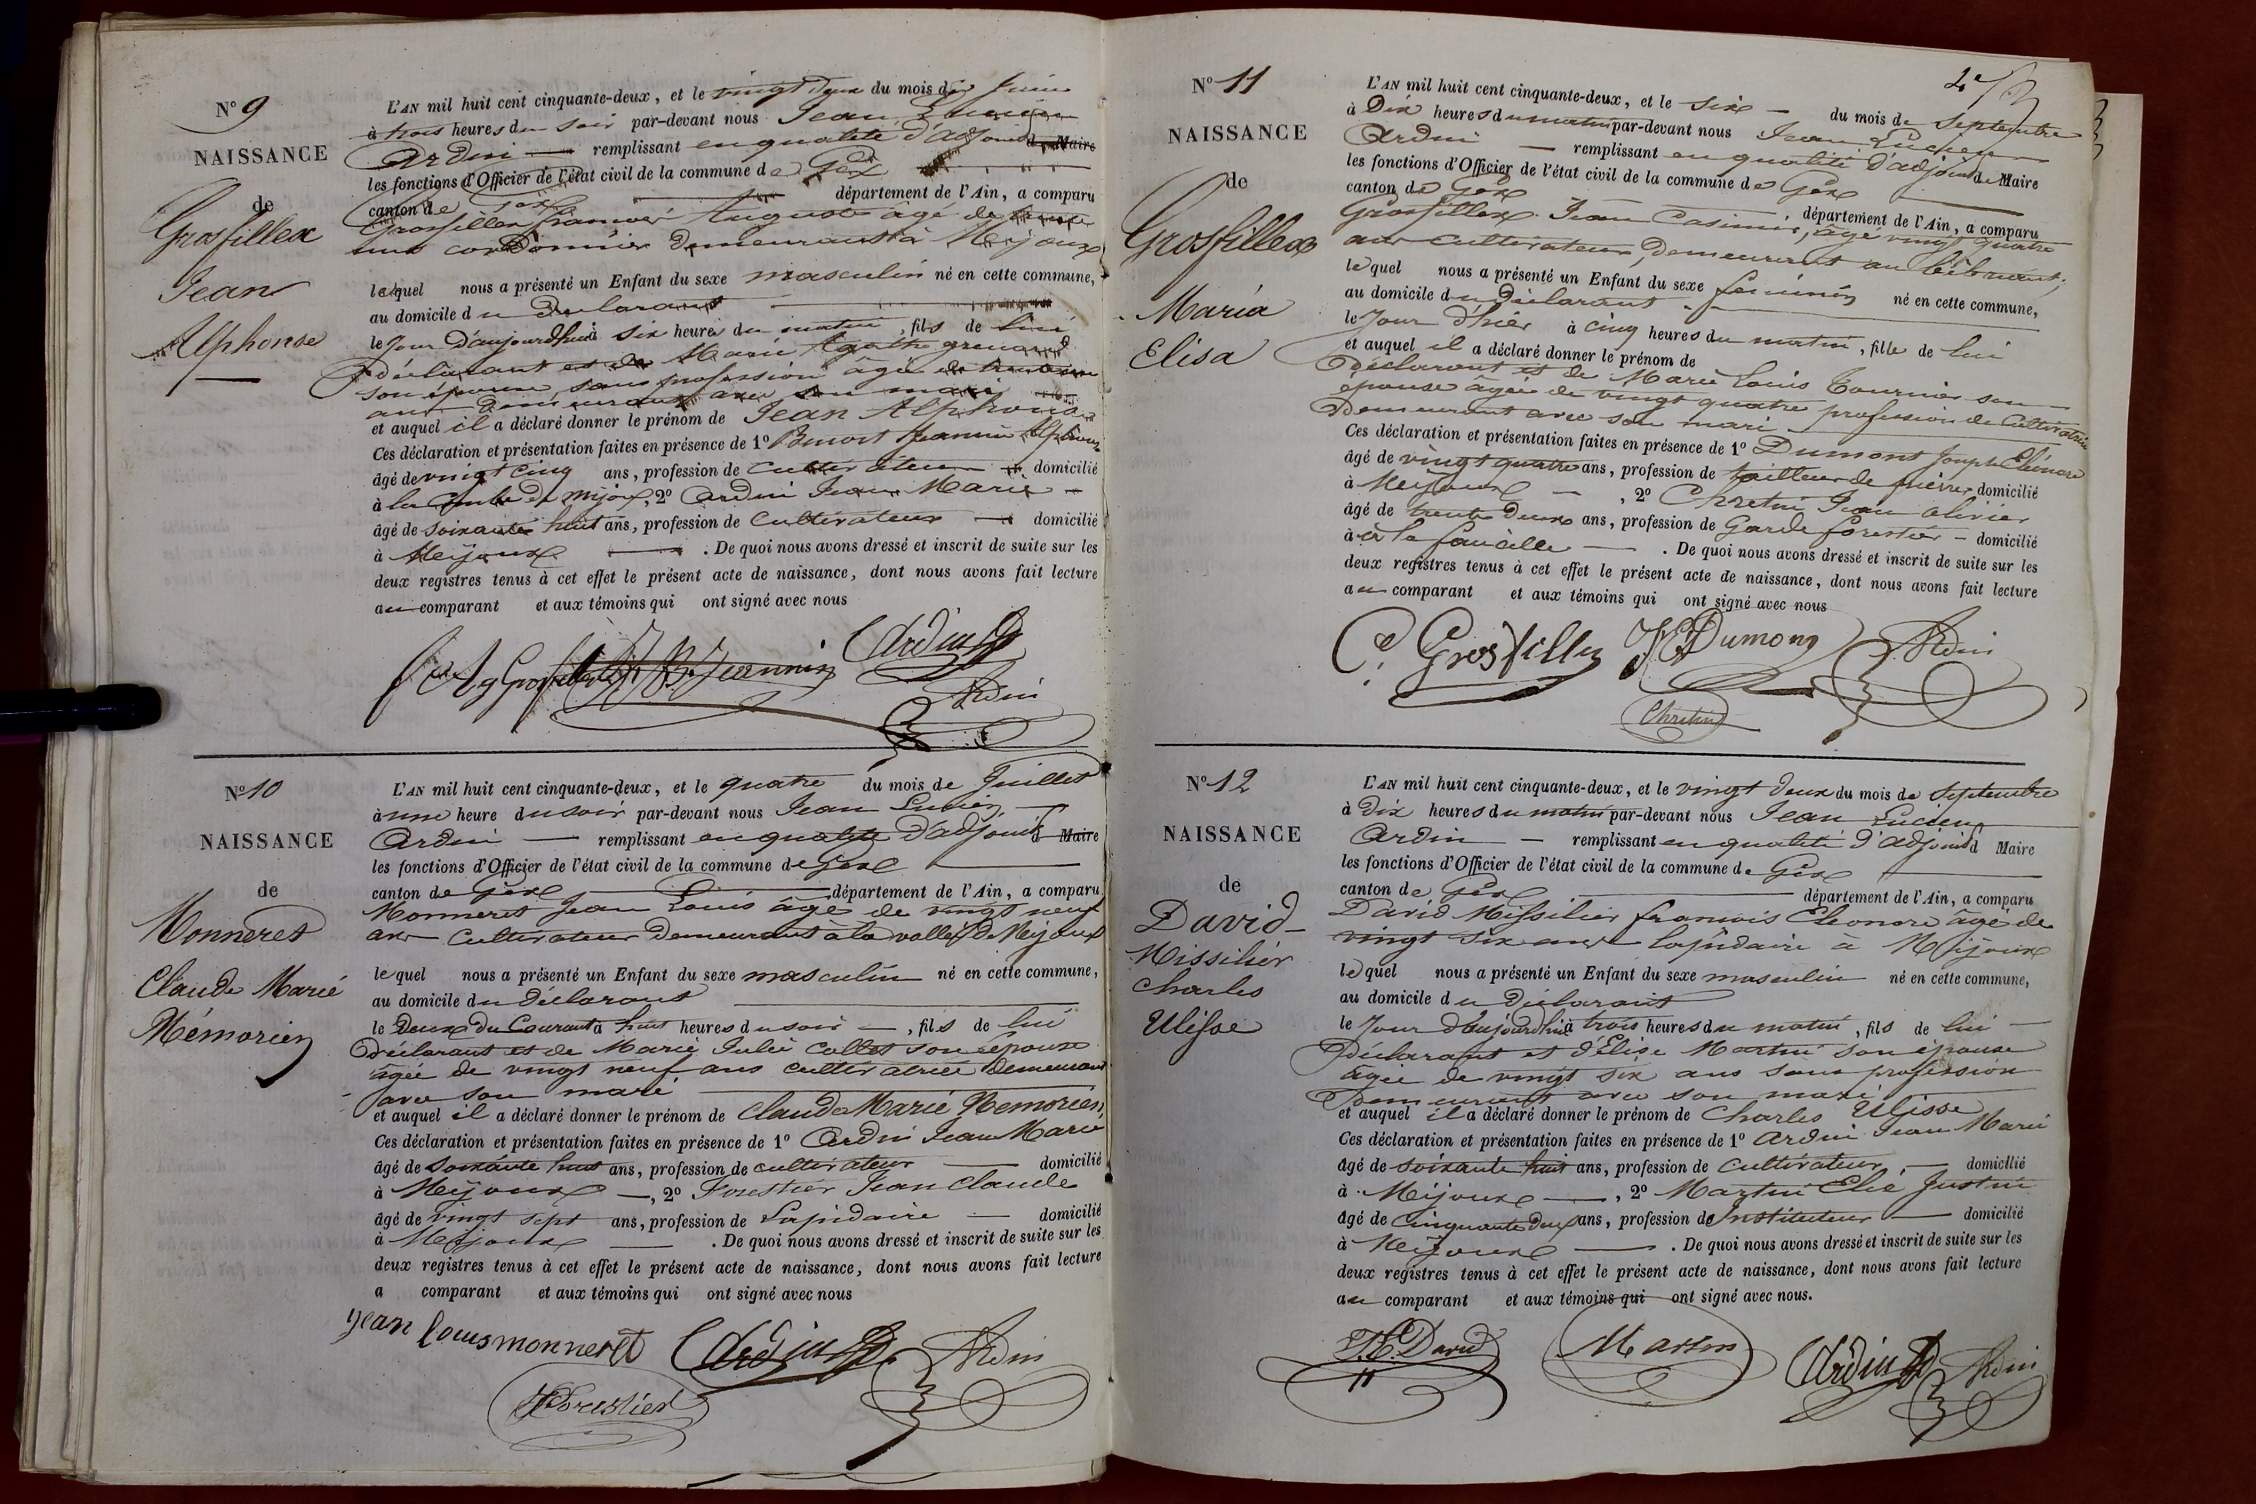 N° 9
NAISSANCE
de
Grosfillex
Jean
Alphonse
L'AN mil huit cent cinquante-deux, et le vingt deux du mois de Juin
à trois heures du soir par-devant nous Jean Lucien
Ardin remplissant en qualité d'adjoint d Maire
les fonctions d'Officier de l'état civil de la commune de Gex
canton de Gex département de l'Ain, a comparu
Grosfillex Auguste âgé de
cordonnier Demeurant à Mijoux
lequel nous a présenté un Enfant du sexe masculin né en cette commune,
au domicile du Déclarant
le Jour D'aujourdhui à six heures du matin, fils de lui
déclarant et de Marie Agathe grenard
son épouse sans profession âgée de
ans Demeurant avec son mari
et auquel il a déclaré donner le prénom de Jean Alphonse
Ces déclaration et présentation faites en présence de 1° Benoit Jeannin Alphonse
âgé de vingt cinq ans, profession de cultivateur domicilié
à la de mijoux, 2° Ardin Jean Marie
âgé de soixante huit ans, profession de cultivateur domicilié
à Meijoux . De quoi nous avons dressé et inscrit de suite sur les
deux registres tenus à cet effet le présent acte de naissance, dont nous avons fait lecture
au comparant et aux témoins qui ont signé avec nous
Jeannin Ardin
Ardin
N° 10
NAISSANCE
de
Monneret
Claude Marie
Mémorien
L'AN mil huit cent cinquante-deux, et le quatre du mois de Juillet
à une heure du soir par-devant nous Jean Lucien
Ardin remplissant en qualité d'adjoint d Maire
les fonctions d'Officier de l'état civil de la commune de Gex
canton de Gex département de l'Ain, a comparu
Monneret Jean Louis âgé de vingt neuf
ans cultivateur Demeurant à la vallée de Meijoux
lequel nous a présenté un Enfant du sexe masculin né en cette commune,
au domicile du déclarant
le Deux du Courant à huit heures du soir, fils de lui
Déclarant et de Marie Julie collet son épouse
âgée de vingt neuf ans cultivatrice Demeurant
avec son mari
et auquel il a déclaré donner le prénom de Claude Marie Memorien,
Ces déclaration et présentation faites en présence de 1° Ardin Jean Marie
âgé de soixante huit ans, profession de cultivateur domicilié
à Meijoux, 2° Forestier Jean Claude
âgé de vingt sept ans, profession de Lapidaire domicilié
à Meijoux . De quoi nous avons dressé et inscrit de suite sur les
deux registres tenus à cet effet le présent acte de naissance, dont nous avons fait lecture
a comparant et aux témoins qui ont signé avec nous
jean louis monneret Ardin Ardin
Forestier
N° 11
NAISSANCE
de
Grosfillex
Maria
Elisa
L'AN mil huit cent cinquante-deux, et le six du mois de septembre
à Dix heures du matin par-devant nous Jean Lucien
Ardin remplissant en qualité d'adjoint de Maire
les fonctions d'Officier de l'état civil de la commune de Gex
canton de Gex département de l'Ain, a comparu
Grosfillex Jean Casimir, âgé vingt quatre
ans cultivateur, demeurant au
lequel nous a présenté un Enfant du sexe feminin né en cette commune,
au domicile du Déclarant
le Jour d'hier à cinq heures du matin, fille de lui
et auquel il a déclaré donner le prénom de
Déclarant et de Marie Louis Tournier son
épouse âgée de vingt quatre profession de Cultivatrice
Demeurant avec son mari
Ces déclaration et présentation faites en présence de 1° Dumont Joseph Eléonore
âgé de vingt quatre ans, profession de tailleur de pierres domicilié
à Meijoux, 2° Chretin Jean olivier
âgé de trente Deux ans, profession de Garde forestier domicilié
à à la faucille . De quoi nous avons dressé et inscrit de suite sur les
deux registres tenus à cet effet le présent acte de naissance, dont nous avons fait lecture
au comparant et aux témoins qui ont signé avec nous
C. Grosfillex Dumont Ardin
Chretin
N° 12
NAISSANCE
de
David
Missilier
Charles
Ulisse
L'AN mil huit cent cinquante-deux, et le vingt deux du mois de septembre
à Dix heures du matin par-devant nous Jean Lucien
Ardin remplissant en qualité d'adjoint d Maire
les fonctions d'Officier de l'état civil de la commune de Gex
canton de Gex département de l'Ain, a comparu
David Missilier francois Eleonore âgé de
vingt six ans Lapidaire à Mijoux
lequel nous a présenté un Enfant du sexe masculin né en cette commune,
au domicile du Déclarant
le Jour d'aujourdhui à trois heures du matin, fils de lui
Déclarant et d'Elise Martin son épouse
âgée de vingt six ans sans profession
Demeurant avec son mari
et auquel il a déclaré donner le prénom de Charles Ulisse
Ces déclaration et présentation faites en présence de 1° Ardin Jean Marie
âgé de soixante huit ans, profession de cultivateur domicilié
à Mijoux, 2° Martin Elie Justin
âgé de cinquante deux ans, profession de Instituteur domicilié
à Meijoux . De quoi nous avons dressé et inscrit de suite sur les
deux registres tenus à cet effet le présent acte de naissance, dont nous avons fait lecture
au comparant et aux témoins qui ont signé avec nous.
F. E. David Martin Ardin Ardin